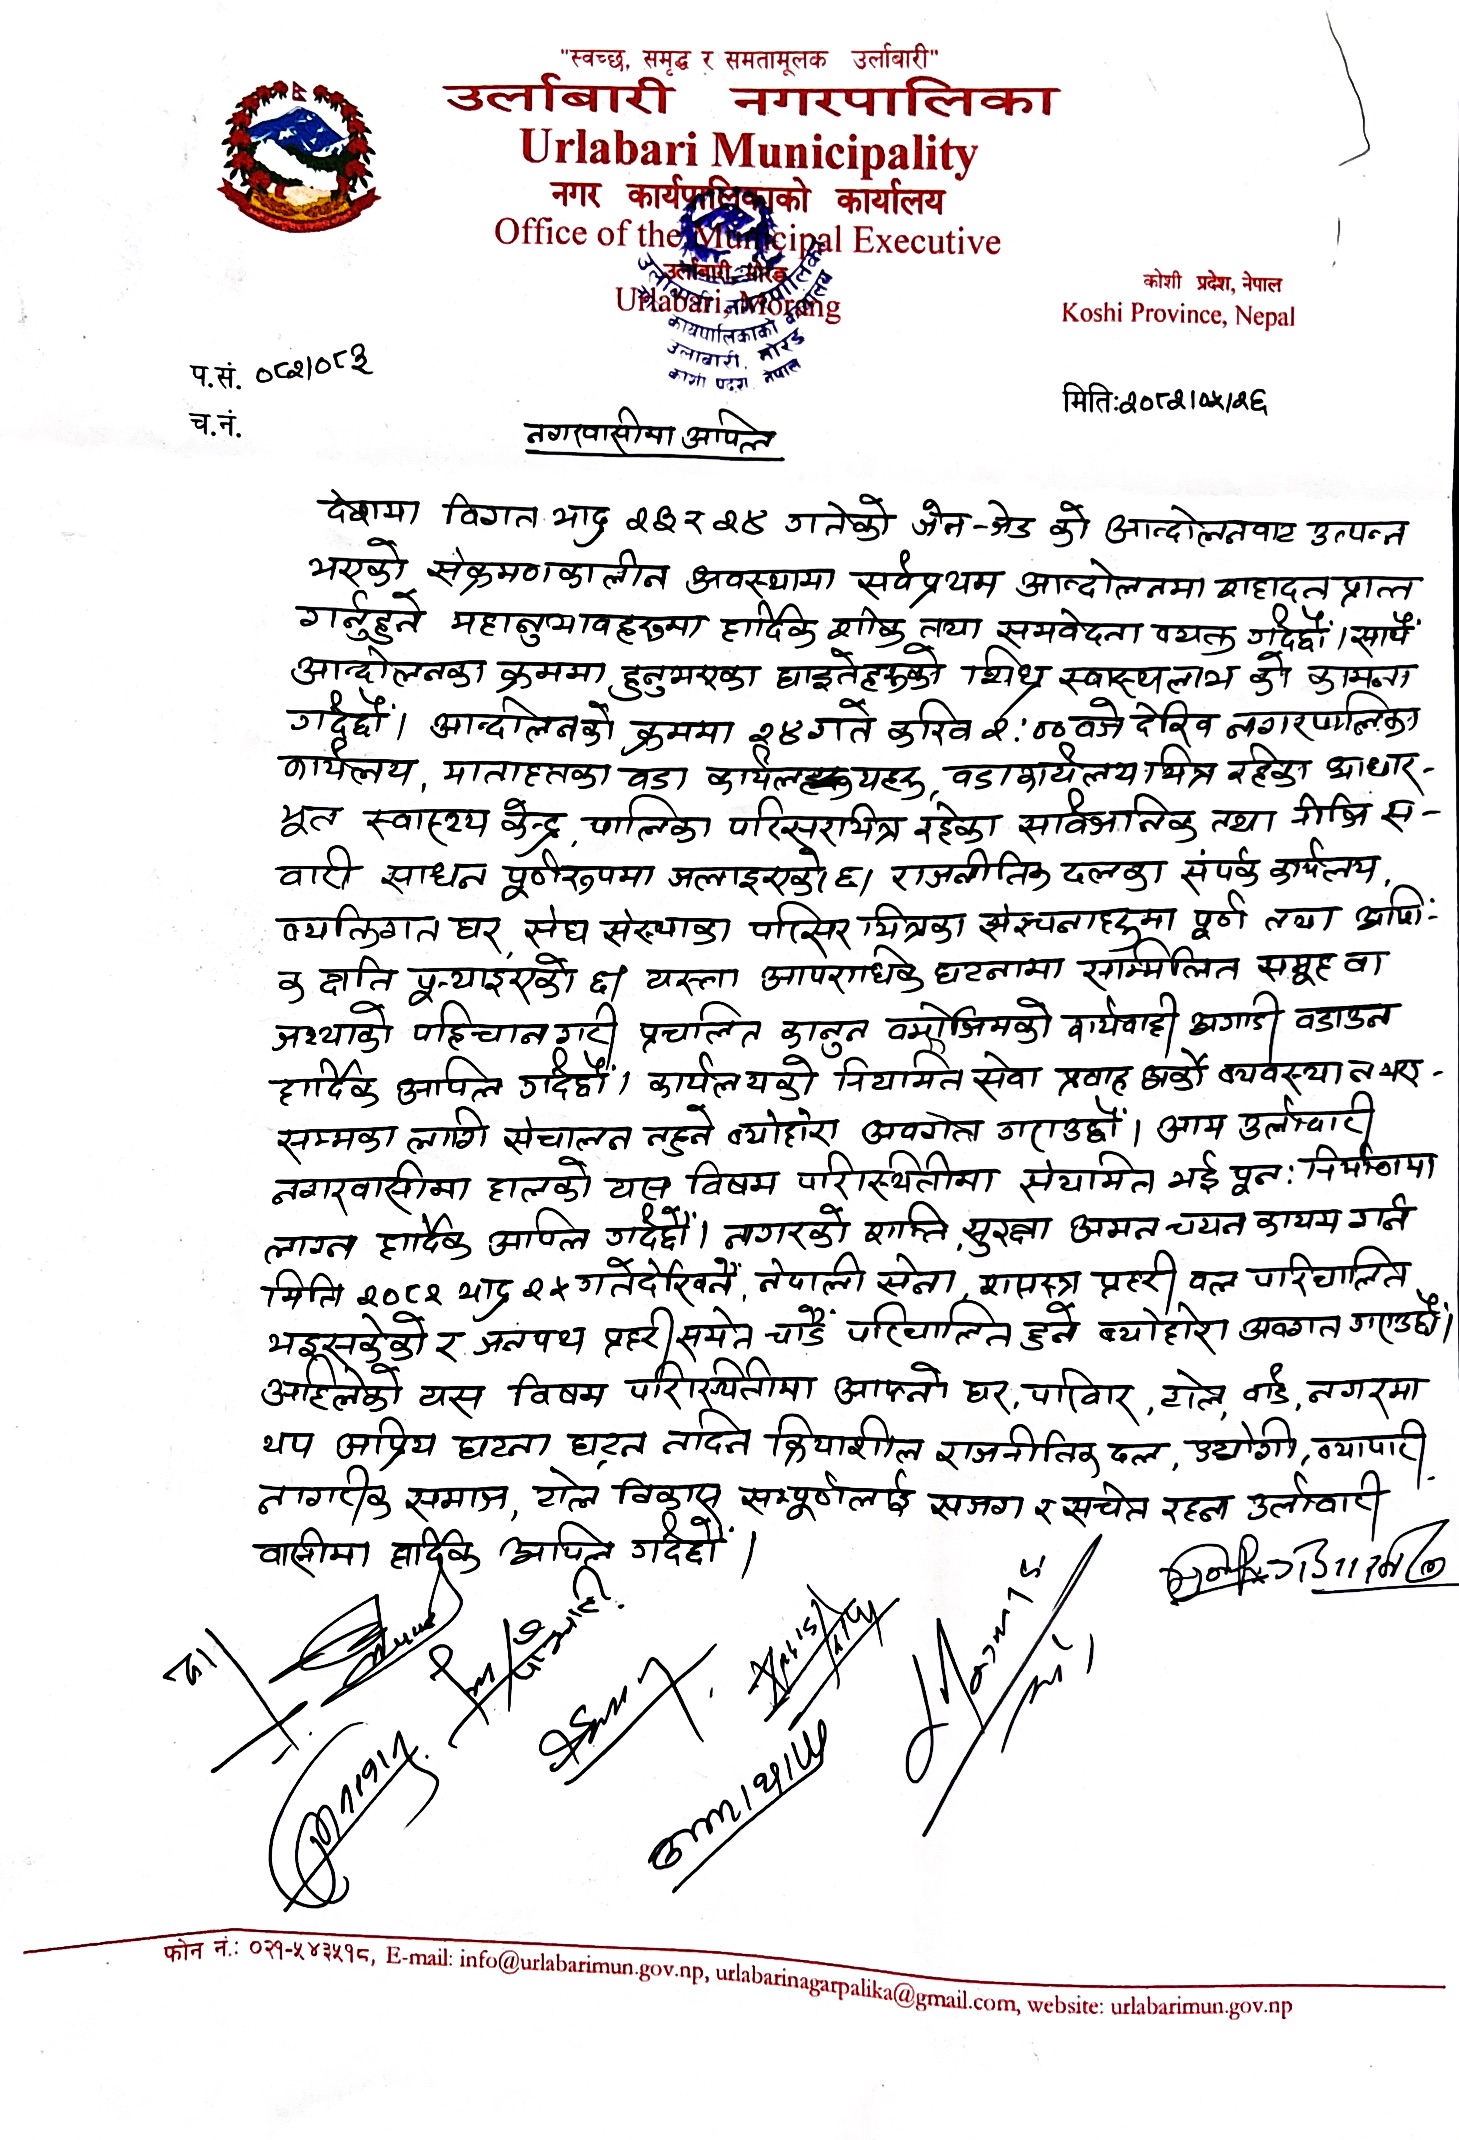 "स्वच्छ, समृद्ध र समतामूलक उर्लाबारी"
उर्लाबारी नगरपालिका
Urlabari Municipality
नगर कार्यपालिकाको कार्यालय
Office of the Municipal Executive
उर्लाबारी, मोरङ
Urlabari, Morang
कोशी प्रदेश, नेपाल
Koshi Province, Nepal
उर्लाबारी नगरपालिका
नगर कार्यपालिकाको कार्यालय
उर्लाबारी, मोरङ
कोशी प्रदेश, नेपाल
प.सं. ०८२/०८३
च.नं.
मितिः२०८२/०५/२६
नगरवासीमा अपिल
देशमा विगत भाद्र २३ र २४ गतेको जेन-जेड को आन्दोलनवाट उत्पन्न
भएको संक्रमणकालीन अवस्थामा सर्वप्रथम आन्दोलनमा शहादत प्राप्त
गर्नुहुने महानुभावहरुमा हार्दिक शोक तथा समवेदना व्यक्त गर्दछौं। साथै
आन्दोलनका क्रममा हुनुभएका घाइतेहरुको शिघ्र स्वास्थ्यलाभ को कामना
गर्दछौं। आन्दोलनको क्रममा २४ गते करिव २:०० वजे देखि नगरपालिका
कार्यलय, मातहतका वडा कार्यलयहरु, वडाकार्यलय भित्र रहेका आधार-
भूत स्वास्थ्य केन्द्र, पालिका परिसरभित्र रहेका सार्वजानिक तथा नीजि स-
वारी साधन पूर्णरुपमा जलाइएको छ। राजनीतिक दलका संपर्क कार्यलय,
व्यक्तिगत घर, संघ संस्थाका परिसर भित्रका संरचनाहरुमा पूर्ण तथा आंशि-
क क्षति पूऱ्याइएको छ। यस्ता आपराधिक घटनामा सम्मिलित समूह वा
जथ्थाको पहिचान गरी प्रचलित कानुन वमोजिमको कार्यवाही अगाडी वडाउन
हार्दिक अपिल गर्दछौं। कार्यलयको नियमित सेवा प्रवाह अर्को व्यवस्था नभए-
सम्मका लागि संचालन नहुने व्योहोरा अवगत गराउछौं। आम उर्लावारी
नगरवासीमा हालको यस विषम परिस्थितीमा संयमित भई पूनः निर्माणमा
लाग्न हार्दिक अपिल गर्दछौं। नगरको शान्ति, सुरक्षा अमन चयन कायम गर्न
मिति २०८२ भाद्र २५ गतेदेखिनै, नेपाली सेना, शसस्त्र प्रहरी वल परिचालित
भइसकेको र जनपथ प्रहरी समेत चाडै परिचालित हुने व्योहोरा अवगत गराउछौं।
अहिलेको यस विषम परिस्थितीमा आफ्नो घर, परिवार, टोल, वार्ड, नगरमा
थप अप्रिय घटना घट्न नदिन क्रियाशील राजनीतिक दल, उद्योगी, व्यापारी
नागरीक समाज, टोल विकास सम्पूर्णलाई सजग र सचेत रहन उर्लावारी
वासीमा हार्दिक अपिल गर्दछौं।
फोन नं.: ०२१-५४३५१८, E-mail: info@urlabarimun.gov.np, urlabarinagarpalika@gmail.com, website: urlabarimun.gov.np